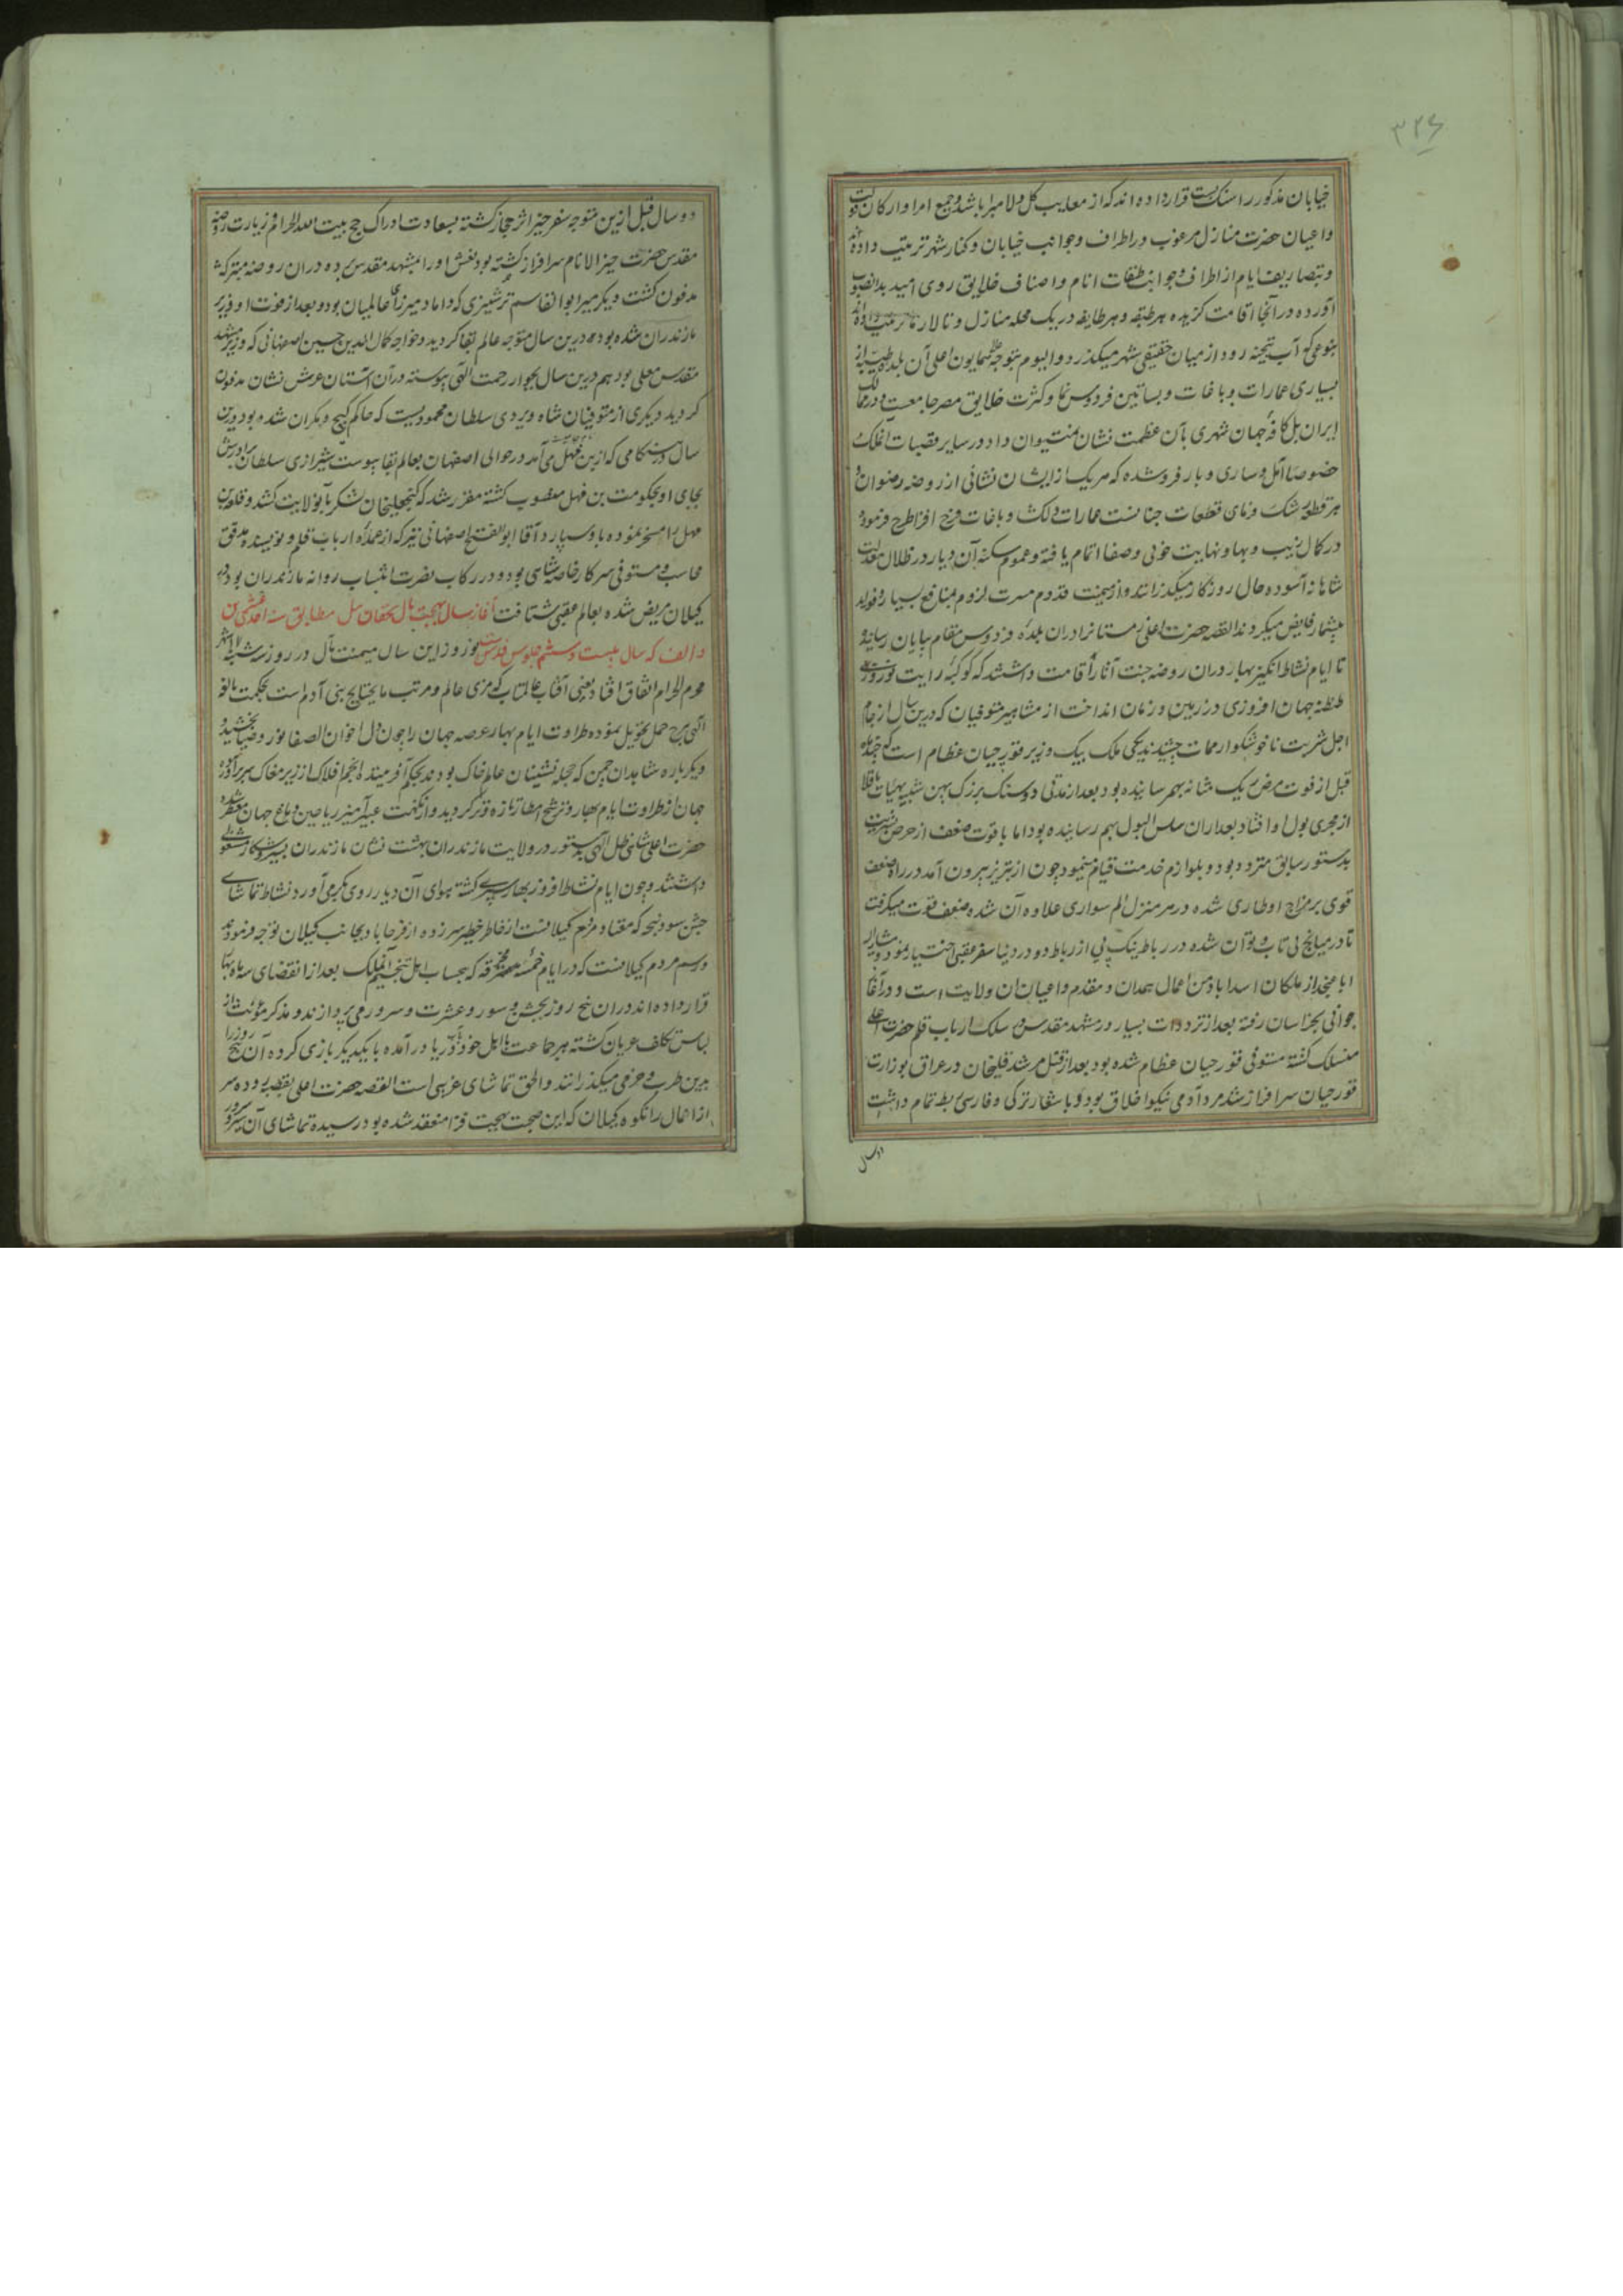 ۳۲۶
خیابان مذکور را سنک بست قرار داده اند که از معایب کل و لا مبرا باشد و جمیع امرا و ارکان دولت
و اعیان حضرت منازل مرغوب در اطراف و جوانب خیابان و کنار شهر ترتیب داده اند
و بتصاریف ایام از اطراف و جوانب طبقات انام و اصناف خلایق روی امید بدانصوب
آورده در آنجا اقامت کزیده هر طبقه و هر طایفه در یک محله منازل و تالارها ترتیب داده اند
بنوعی که آب تیجنه رود از میان حقیقی شهر میکذرد و الیوم بتوجه همایون اعلی آن بلده طیبه از
بسیاری عمارات و باغات و بساتین فردوس نما و کثرت خلایق مصر جامعست و در ممالک
ایران بل کافه جهان شهری بآن عظمت نشان نمیتوان داد و در سایر قصبات آنملک
خصوصا آمل و ساری و بارفروشده که هریک از ایشان نشانی از روضه رضوان و
هر قطعه رشک فزمای قطعات جنانست عمارات دلکش و باغات فرح افزا طرح فرموده
در کمال زیب و بها و نهایت خوبی و صفا اتمام یافته و عموم سکنه آن دیار در ظلال معدلت
شاهانه آسوده حال روزکار میکذرانند و از میمنت قدوم مسرت لزوم بمنافع بسیار و فواید
بیشمار فایض میکردند القصه حضرت اعلی زمستانرا در ان بلده فردوس مقام بپایان رسانیده
تا ایام نشاط انکیز بهار در ان روضه جنت آثار اقامت داشتند که کوکبه رایت نوروزی
طنطنه جهان افروزی در زمین و زمان انداخت از مشاهیر متوفیان که درین سال از جام
اجل شربت ناخوشکوار ممات چشیدند یکی ملک بیک وزیر قورچیان عظام است که چند ماه
قبل از فوت مرض یک مثانه بهم رسانیده بود بعد از مدتی دو سنک بزرک پهن شبیه بهیات باقلا
از مجری بول او افتاد بعد از ان سلس البول بهم رسانیده بود اما با قوت ضعف از حرص بشریت
بدستور سابق متردد بود و بلوازم خدمت قیام مینمود چون از تبریز بیرون آمد در راه ضعف
قوی بر مزاج او طاری شده در هر منزل الم سواری علاوه آن شده ضعف قوت میکرفت
تا در میانج بی تاب و توان شده در رباط نیک پی از رباط دودر دنیا سفر عقبی اختیار نمود و مشار الیه
ابا عن جد از ملکان اسداباد من اعمال همدان و مقدم و اعیان ان ولایت است و در آغاز
جوانی بخراسان رفته بعد از ترددات بسیار در مشهد مقدس در سلک ارباب قلم حضرت اعلی
منسلک کشته مستوفی قورچیان عظام شده بود بعد از قتل مرشد قلیخان در عراق بوزارت
قورچیان سرافراز شد مرد آدمی نیکو اخلاق بود و با شعار ترکی و فارسی ربط تمام داشت
دو سال
دو سال قبل ازین متوجه سفر خیر اثر حجاز کشته بسعادت ادراک حج بیت الله الحرام و زیارت روضه
مقدس حضرت خیر الانام سرافراز کشته بود نعش او را بمشهد مقدس برده در ان روضه متبرکه
مدفون کشت دیکر میر ابوالقاسم ترشیزی که داماد میرزای عالمیان بود و بعد از فوت او وزیر
مازندران شده بود درین سال متوجه عالم بقا کردید و خواجه کمال الدین حسین اصفهانی که وزیر مشهد
مقدس معلی بود هم درین سال بجوار رحمت الهی پیوسته در آن آستان عرش نشان مدفون
کردید دیکری از متوفیان شاه ویردی سلطان محمودیست که حاکم کیج و مکران شده بود درین
سال در هنکامی که از بن فهل می آمد در حوالی اصفهان بعالم بقا پیوست شیرازی سلطان برادرش
بجای او بحکومت بن فهل منصوب کشته مقرر شد که کنجعلیخان لشکر بآنولایت کشد و قلعه بن
فهل را مسخر نموده باو سپارد آقا ابوالفتح اصفهانی نیز که از عمده ارباب قلم و نویسنده مدقق
محاسب و مستوفی سرکار خاصه شاهی بود و در رکاب نصرت انتساب روانه مازندران بود در
کیلان مریض شده بعالم عقبی شتافت آغاز سال بهجت مآل تخاقان ییل مطابق سنه احدی عشرین
و الف که سال بیست و ششم جلوس قدس است نوروز این سال میمنت مآل در روز سه شنبه
محرم الحرام اتفاق افتاد یعنی آفتاب عالمتاب که مربی عالم و مرتب ما یحتاج بنی آدم است بحکمت بالغه
الهی ببرج حمل تحویل نموده طراوت ایام بهار عرصه جهان را چون دل اخوان الصفا نور و ضیا بخشید و
دیکر باره شاهدان چمن که حجله نشینان عالم خاک بودند بحکم آفریننده انجم افلاک از زیر مغاک سر برآورده
جهان از طراوت ایام بهار و ترشح امطار تازه و تر کردید و از نکهت عبیر آمیز ریاحین دماغ جهان معطر شد
حضرت اعلی شاهی ظل الهی بدستور در ولایت مازندران بهشت نشان مازندران بسیر و شکار مشغولی
داشتند و چون ایام نشاط افروز بهار سپری کشته هوای آن دیار روی بکرمی آورد نشاط تماشای
جشن سود پنجه که معتاد مردم کیلانست از خاطر خطیر سر زده از فرح اباد بجانب کیلان توجه فرمودند
و رسم مردم کیلانست که در ایام خمسه مسترقه که بحساب اهل تنجیم آنملک بعد از انقضای سه ماه بهار
قرار داده اند در ان پنج روز بجشن و سور و عشرت و سرور می پردازند و مذکر و مؤنث از
لباس تکلف عریان کشته هر جماعت با اهل خود بدریا درآمده با یکدیکر بازی کرده آن پنج روز را
بدین طرب و خرمی میکذرانند و الحق تماشای غریبی است القصه حضرت اعلی بقصبه رودسر
از اعمال رانکوه کیلان که این صحبت بهجت فزا منعقد شده بود رسیده تماشای آن